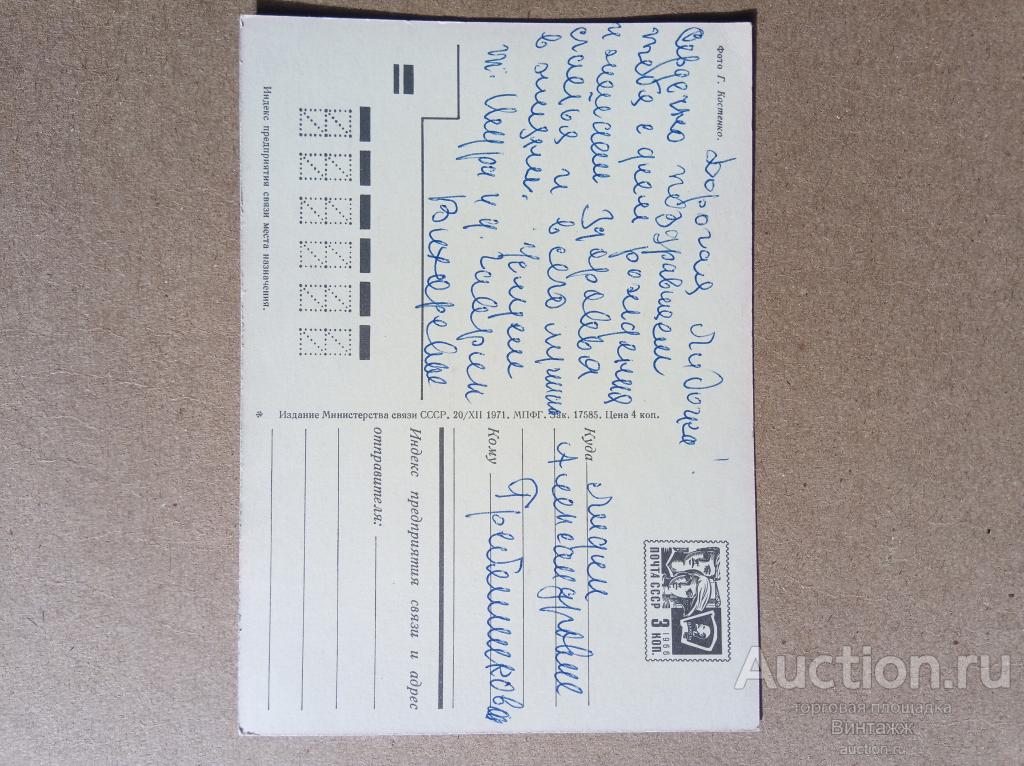 Фото Г. Костенко.
Дорогая Лидочка!
Сердечно поздравляем
тебя с днем рождения
и желаем Здоровья
счастья и всего лучшего
в жизни. Целуем
т. Шура и д. Гаврил
Вихаревы
Индекс предприятия связи места назначения.
* Издание Министерства связи СССР. 20/XII 1971. МПФГ. Зак. 17585. Цена 4 коп.
ПОЧТА СССР 3 КОП.
1966
Куда Лидии
Александровне
Кому Гребенщикова
Индекс предприятия связи и адрес
отправителя:
Auction.ru
торговая площадка
Винтажж
auction.ru